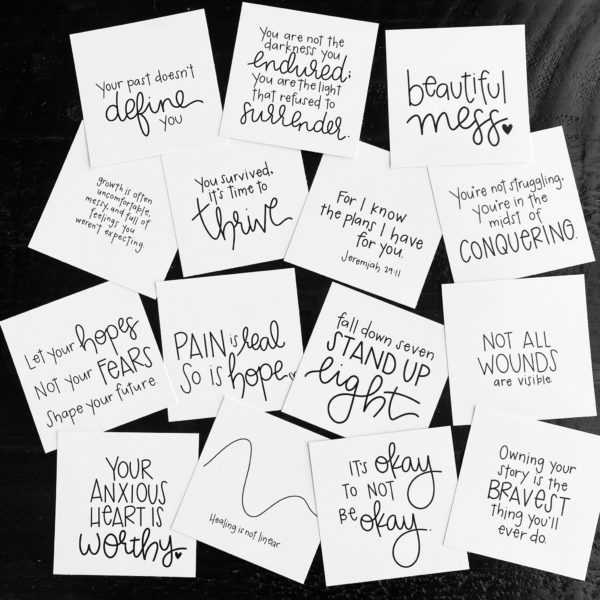 Your past doesn't
define
you
You are not the
darkness you
endured;
You are the light
that refused to
surrender.
beautiful
mess
growth is often
uncomfortable,
messy, and full of
feelings you
weren't expecting.
You survived,
it's time to
thrive
For I know
the plans I have
for you.
Jeremiah 29:11
You're not struggling,
you're in the
midst of
CONQUERING.
Let your hopes
Not your FEARS
Shape your future.
PAIN is real
So is hope
fall down seven
STAND UP
eight
NOT ALL
WOUNDS
are visible.
YOUR
ANXIOUS
HEART IS
worthy
Healing is not linear.
IT'S okay
TO NOT
BE okay.
Owning your
story is the
BRAVEST
thing you'll
ever do.